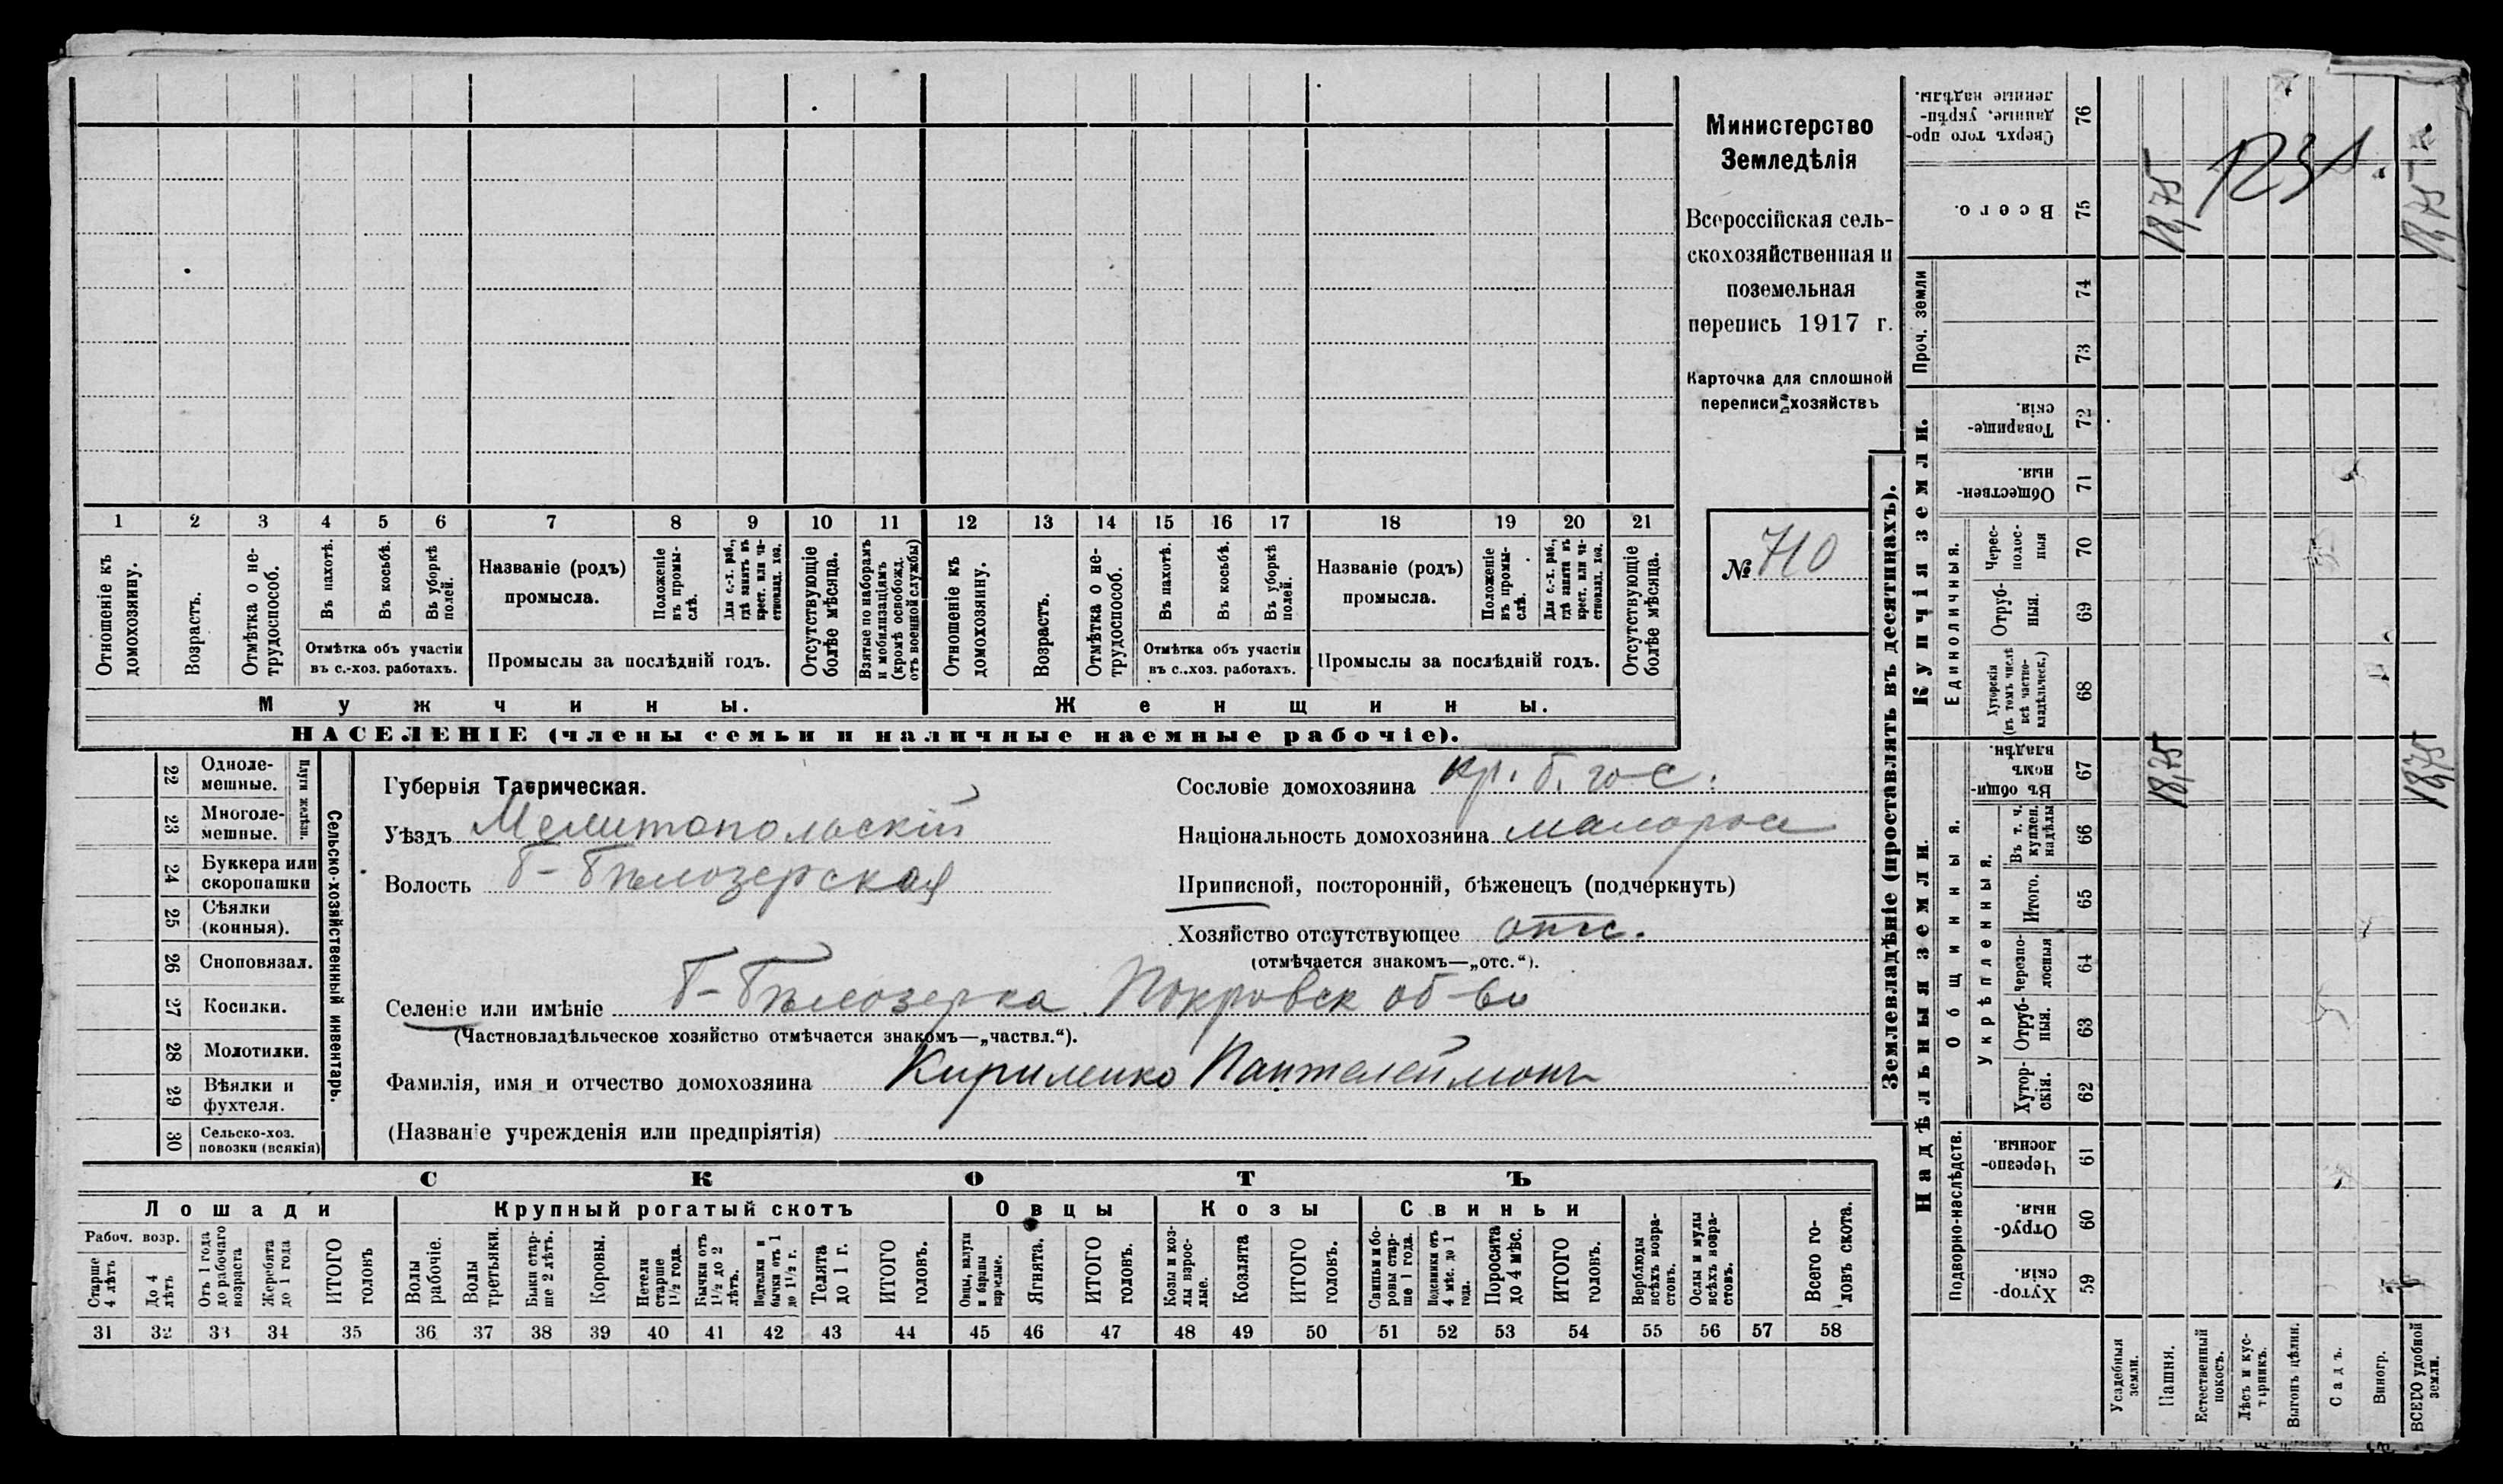 Министерство
Земледѣлія
Всероссійская сель-
скохозяйственная и
поземельная
перепись 1917 г.
Карточка для сплошной
переписи хозяйствъ
№ 710
1 2 3 4 5 6 7 8 9 10 11 12 13 14 15 16 17 18 19 20 21
Отношеніе къ домохозяину.
Возрастъ.
Отмѣтка о не-трудоспособ.
Въ пахотѣ.
Въ косьбѣ.
Въ уборкѣ полей.
Отмѣтка объ участіи
въ с.-хоз. работахъ.
Названіе (родъ)
промысла.
Положеніе въ промы-слѣ.
Для с.-х. раб., гдѣ занятъ въ крест. или ча-стновлад. хоз.
Промыслы за послѣдній годъ.
Отсутствующіе болѣе мѣсяца.
Взятые по наборамъ и мобилизаціямъ (кромѣ освобожд. отъ военной службы)
Отношеніе къ домохозяину.
Возрастъ.
Отмѣтка о не-трудоспособ.
Въ пахотѣ.
Въ косьбѣ.
Въ уборкѣ полей.
Отмѣтка объ участіи
въ с.-хоз. работахъ.
Названіе (родъ)
промысла.
Положеніе въ промы-слѣ.
Для с.-х. раб., гдѣ занята въ крест. или ча-стновлад. хоз.
Промыслы за послѣдній годъ.
Отсутствующіе болѣе мѣсяца.
Мужчины. Женщины.
НАСЕЛЕНІЕ (члены семьи и наличные наемные рабочіе).
22 Одноле-мешные.
23 Многоле-мешные.
Плуги желѣзн.
24 Буккера или скоропашки
25 Сѣялки (конныя).
26 Сноповязал.
27 Косилки.
28 Молотилки.
29 Вѣялки и фухтеля.
30 Сельско-хоз. повозки (всякія)
Сельско-хозяйственный инвентарь.
Губернія Таврическая.
Уѣздъ Мелитопольскій
Волость Б-Бѣлозерская
Сословіе домохозяина кр. б. гос.
Національность домохозяина малорос
Приписной, посторонній, бѣженецъ (подчеркнуть)
Хозяйство отсутствующее отс.
(отмѣчается знакомъ—„отс.“).
Селеніе или имѣніе Б-Бѣлозерка Покровск об-во
(Частновладѣльческое хозяйство отмѣчается знакомъ—„частвл.“).
Фамилія, имя и отчество домохозяина Кириленко Пантелеймонъ
(Названіе учрежденія или предпріятія)
СКОТЪ
Лошади Крупный рогатый скотъ Овцы Козы Свиньи
Рабоч. возр.
Старше 4 лѣтъ
До 4 лѣтъ
Отъ 1 года до рабочаго возраста
Жеребята до 1 года
ИТОГО головъ
Волы рабочіе.
Волы третьяки.
Быки стар-ше 2 лѣтъ.
Коровы.
Нетели старше 1½ года.
Бычки отъ 1½ до 2 лѣтъ.
Подтелки и бычки отъ 1 до 1½ г.
Телята до 1 г.
ИТОГО головъ.
Овцы, валухи и бараны взрослые.
Ягнята.
ИТОГО головъ.
Козы и коз-лы взрос-лые.
Козлята
ИТОГО головъ.
Свиньи и бо-ровы стар-ше 1 года.
Подсвинки отъ 4 мѣс. до 1 года.
Поросята до 4 мѣс.
ИТОГО головъ.
Верблюды всѣхъ возра-стовъ.
Ослы и мулы всѣхъ возра-стовъ.
Всего го-ловъ скота.
31 32 33 34 35 36 37 38 39 40 41 42 43 44 45 46 47 48 49 50 51 52 53 54 55 56 57 58
Землевладѣніе (проставлять въ десятинахъ).
Надѣльныя земли.
Подворно-наслѣдств.
Хутор-скія. 59
Отруб-ныя. 60
Черезпо-лосныя. 61
Общинныя.
Укрѣпленныя.
Хутор-скія. 62
Отруб-ныя. 63
черезпо-лосныя 64
Итого. 65
Въ т. ч. куплен. надѣлы 66
Въ общи-номъ владѣн. 67
18,75
18,75
Купчія земли.
Единоличныя.
Хуторскія (въ томъ числѣ всѣ частно-владѣльческ.) 68
Отруб-ныя. 69
Черес-полос-ныя 70
Обществен-ныя. 71
Товарище-скія. 72
Проч. земли
73
74
Всего. 75
18,75
18,75
Сверхъ того про-данные, укрѣп-ленные надѣлы. 76
Усадебныя земли.
Пашня.
Естественный покосъ.
Лѣсъ и кус-тарникъ.
Выгонъ цѣлин.
Садъ.
Виногр.
ВСЕГО удобной земли.